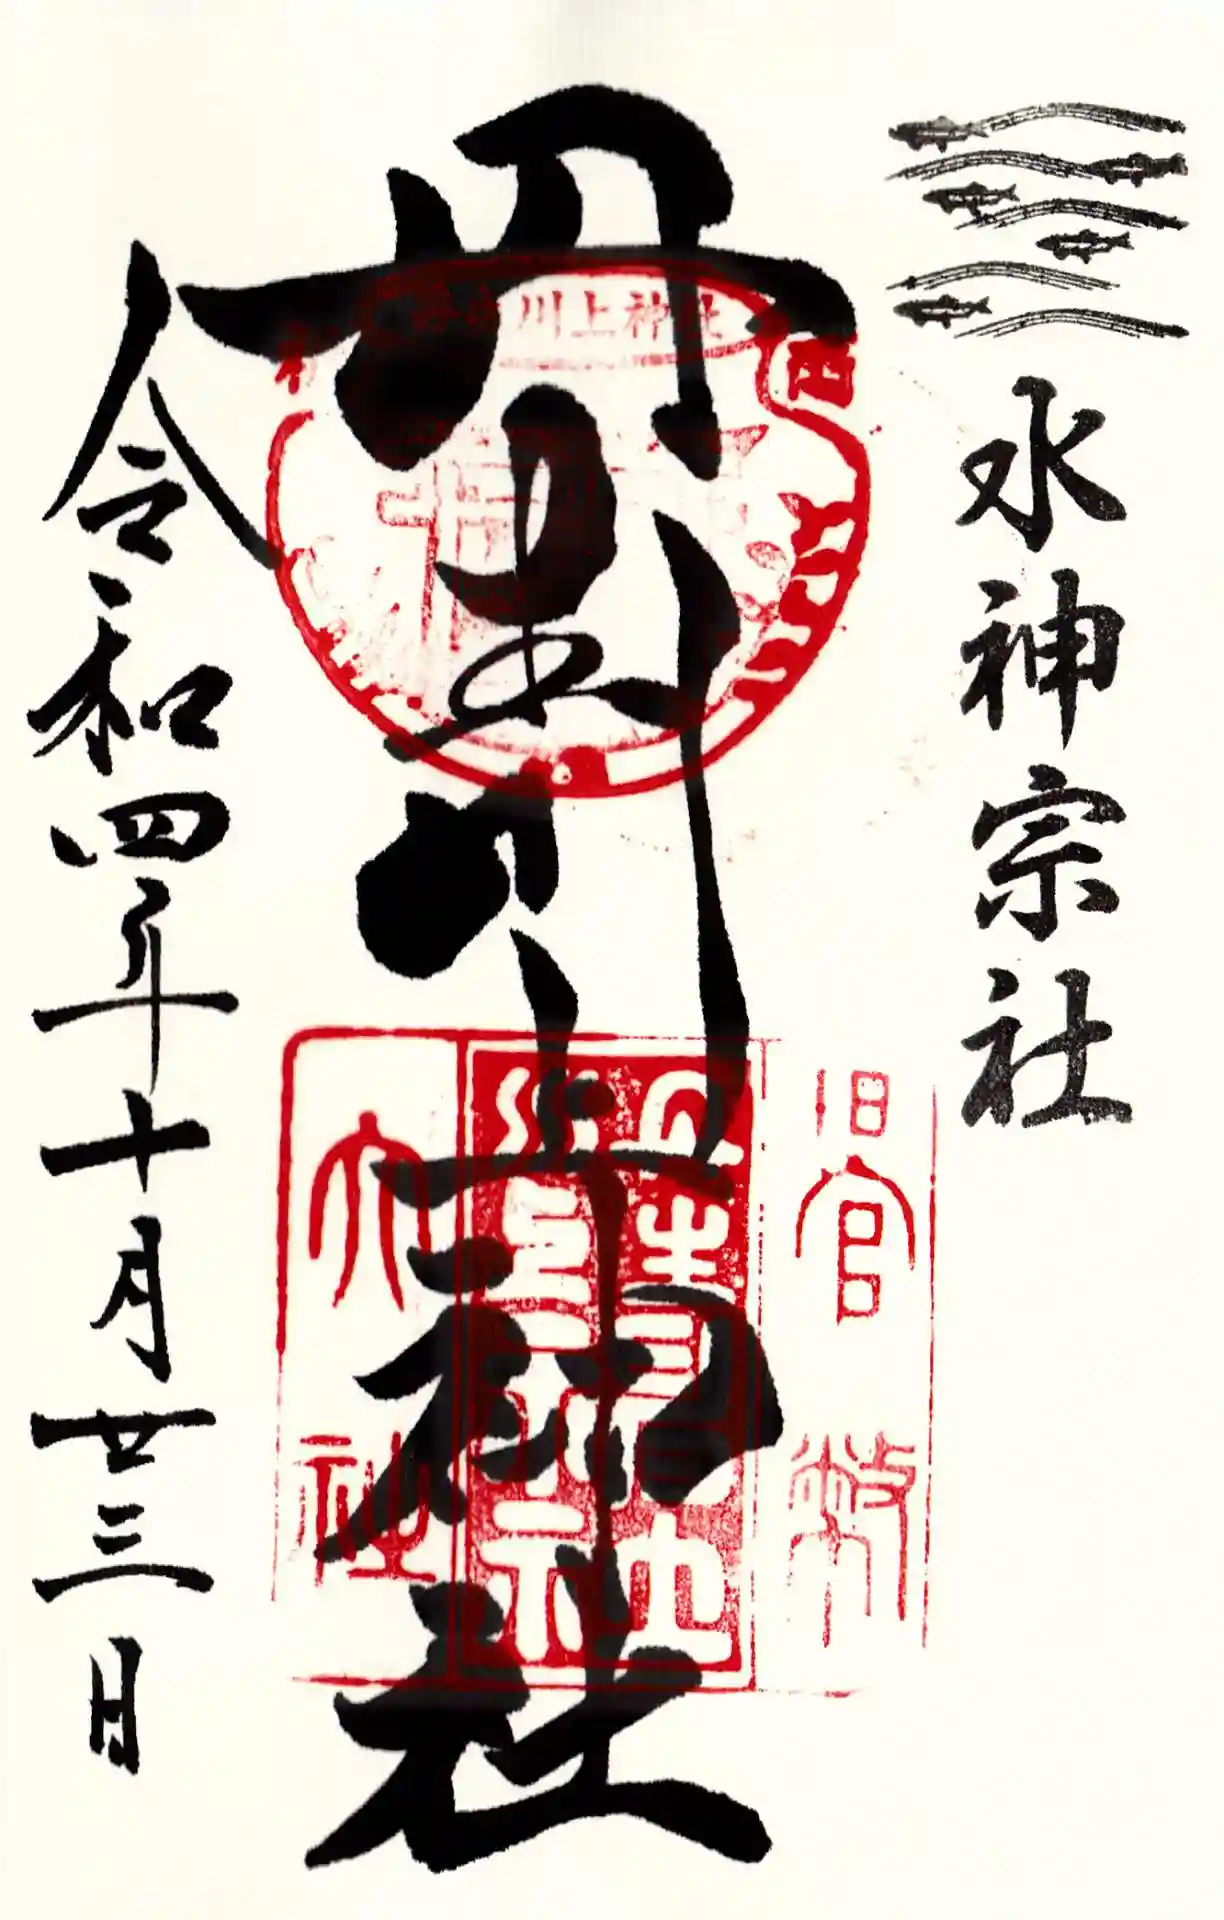 水神宗社
丹生川上神社
川上神社
旧官幣
大社
令和四年十月廿三日